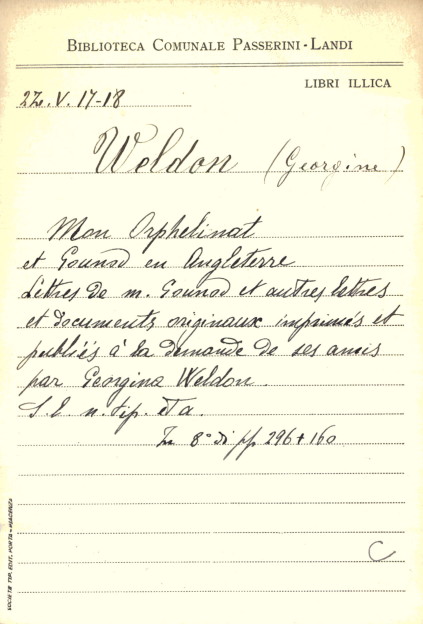 BIBLIOTECA COMUNALE PASSERINI-LANDI
LIBRI ILLICA
2Z.V.17-18
Weldon (Georgine)
Mon Orphelinat
et Gounod en Angleterre
Lettres de m. Gounod et autres lettres
et documents originaux imprimés et
publiés à la demande de ses amis
par Georgina Weldon.
S. l. n. tip. et a.
In 8° di pp 296+160
C
SOCIETÀ TIP. EDIT. PORTA - PIACENZA